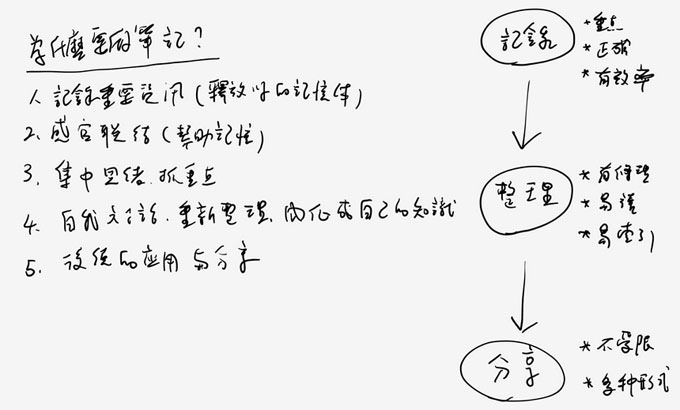 為什麼要做筆記？
1. 記錄重要資訊（釋放你的記憶体）
2. 感官联结（幫助記憶）
3. 集中思绪．抓重点
4. 自我对話．重新整理．內化成自己的知識
5. 後续的应用与分享
記錄
* 重点
* 正確
* 有效率
整理
* 有條理
* 易讀
* 易索引
分享
* 不受限
* 多种形式